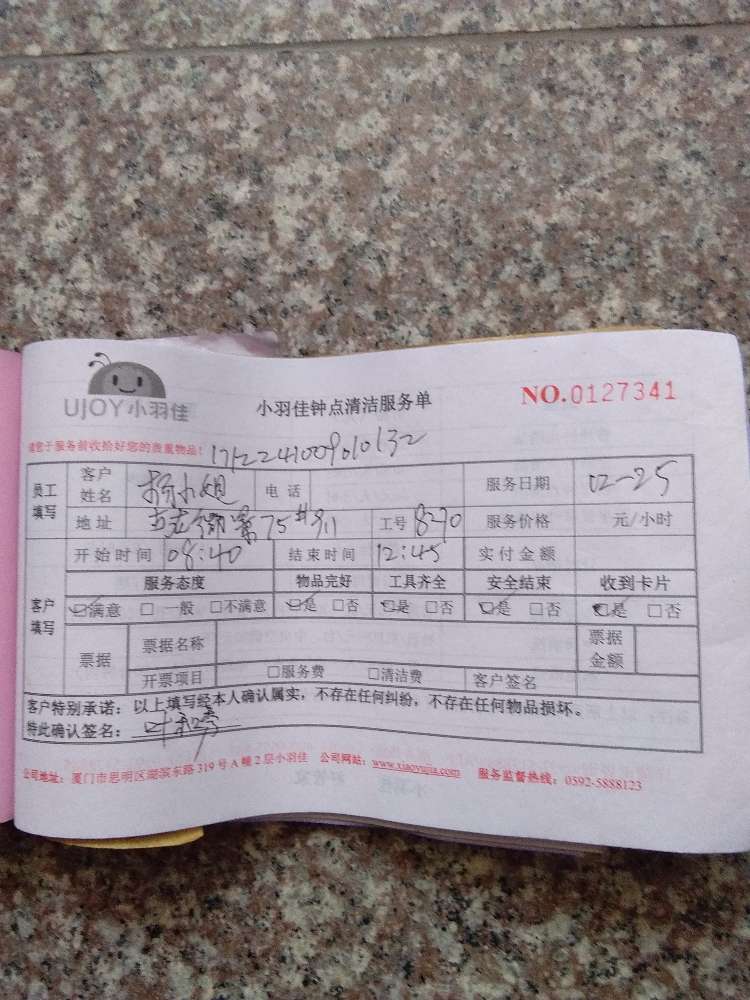 UJOY小羽佳
小羽佳钟点清洁服务单
NO.0127341
请您于服务前收拾好您的贵重物品！
1712241009010132
员工填写 客户姓名 杨小姐 电话 服务日期 02-25
地址 75#911 工号 8270 服务价格 元/小时
客户填写 开始时间 08:40 结束时间 12:45 实付金额
服务态度 物品完好 工具齐全 安全结束 收到卡片
满意 一般 不满意 是 否 是 否 是 否 是 否
票据 票据名称 票据金额
开票项目 服务费 清洁费 客户签名
客户特别承诺：以上填写经本人确认属实，不存在任何纠纷，不存在任何物品损坏。
特此确认签名：
公司地址：厦门市思明区湖滨东路319号A幢2层小羽佳 公司网站：www.xiaoyujia.com 服务监督热线：0592-5888123